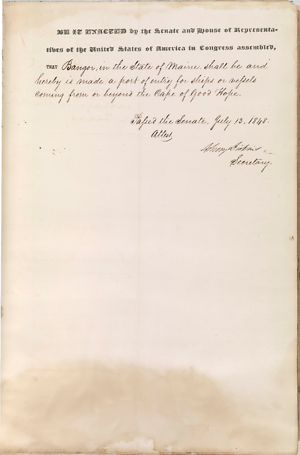 BE IT ENACTED by the Senate and House of Representa-
tives of the United States of America in Congress assembled,
THAT Bangor, in the State of Maine shall be and
hereby is made a port of entry for ships or vessels
coming from or beyond the Cape of Good Hope.
Passed the Senate, July 13, 1848.
Attest
Secretary